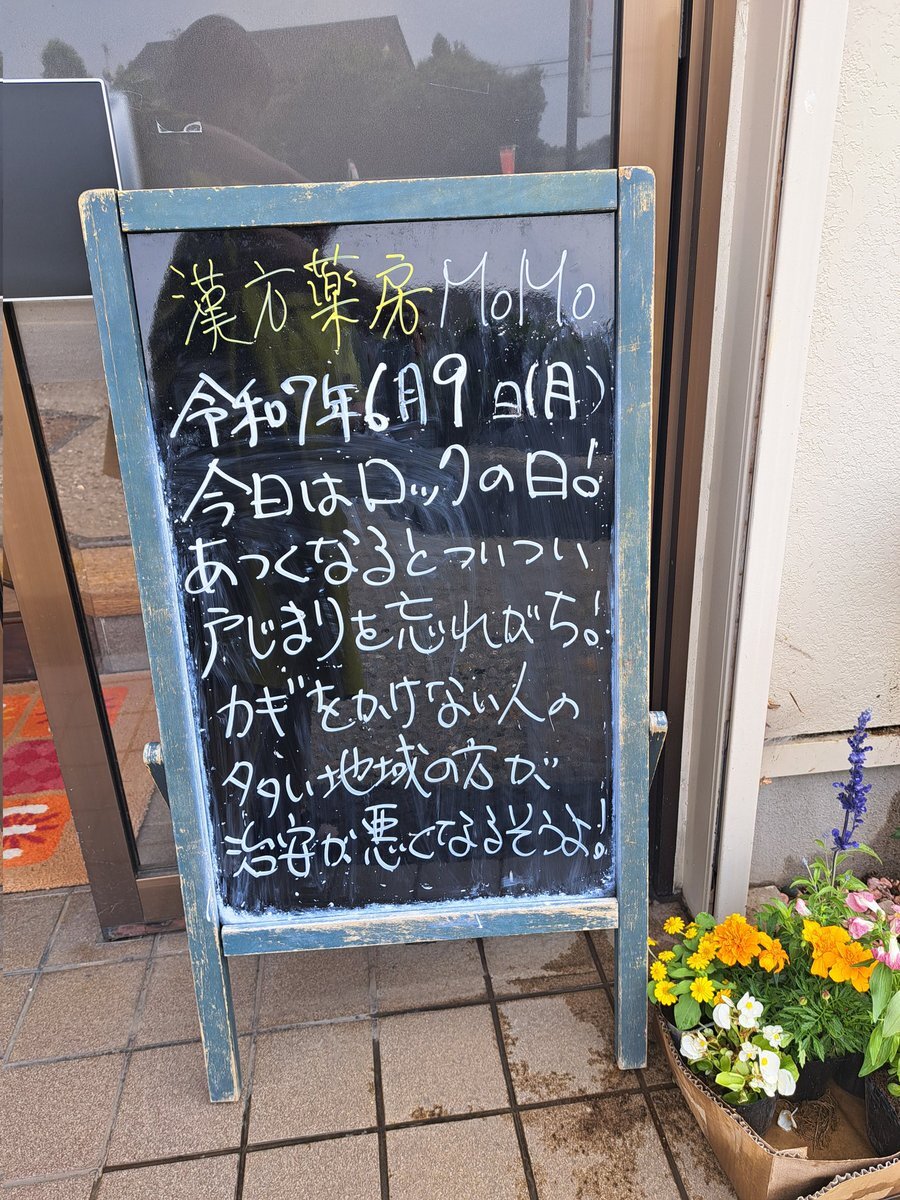 漢方薬房 MoMo
令和7年6月9日(月)
今日はロックの日!
あつくなるとついつい
戸じまりを忘れがち!
カギをかけない人の
多い地域の方が
治安が悪くなるそうよ!